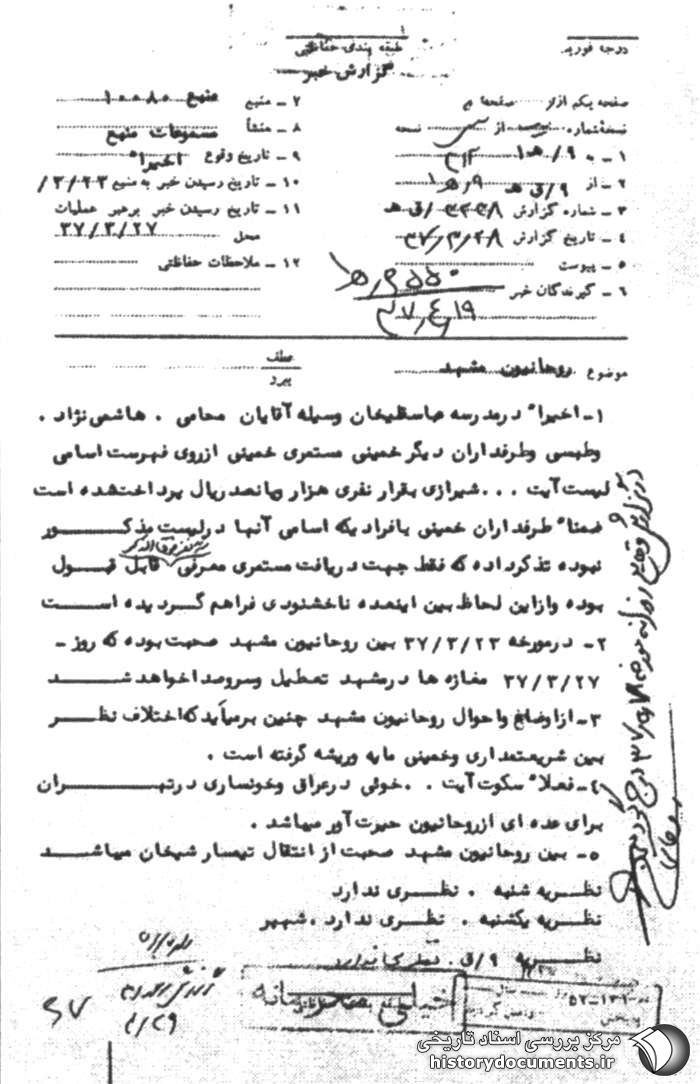 درجه فوریت
طبقه بندی حفاظتی
گزارش خبر
صفحه یکم از صفحه
نسخه شماره از نسخه
۱ـ به ۹/ه۱
۲ـ از ۹/ق ه
۳ـ شماره گزارش /ق ه
۴ـ تاریخ گزارش ۳۷/۳/۲۸
۵ـ پیوست
۶ـ گیرندگان خبر
۳۷/۴/۱۹
۷ـ منبع منبع ۱۰۰۸۰
۸ـ منشأ مسموعات منبع
۹ـ تاریخ وقوع اخیرا"
۱۰ـ تاریخ رسیدن خبر به منبع ۳/۲۳/
۱۱ـ تاریخ رسیدن خبر برهبر عملیات
محل ۳۷/۳/۲۷
۱۲ـ ملاحظات حفاظتی
موضوع روحانیون مشهد
عطف
پیرو
۱ـ اخیرا" درمدرسه عباسقلیخان وسیله آقایان محامی . هاشمی نژاد .
وطبسی وطرفداران دیگر خمینی مستمری خمینی ازروی فهرست اسامی
لیست آیت ...شیرازی بقرار نفری هزار وپانصد ریال پرداخت شده است
ضمنا" طرفداران خمینی بافراد یکه اسامی آنها درلیست مذکـــور
نبوده تذکر داده که فقط جهت دریافت مستمری معرفی قابل قبـول
بوده وازاین لحاظ بین اینعده ناخشنودی فراهم گردیده اســـت
۲ـ درمورخه ۳۷/۳/۲۳ بین روحانیون مشهد صحبت بوده که روز ـ
۳۷/۳/۲۷ مغازه ها درمشهد تعطیل وسروصدا خواهد شــــد
۳ـ ازاوضاع واحوال روحانیون مشهد چنین برمیآید که اختلاف نظـــر
بین شریعتمداری وخمینی مایه وریشه گرفته است .
۴ـ فعلا" سکوت آیت ...خوئی درعراق وخونساری درتهـــــران
برای عده ای ازروحانیون حیرت آور میباشد .
۵ـ بین روحانیون مشهد صحبت از انتقال تیمسار شیخان میباشـــد
نظـــریه شنبه . نظـــری ندارد
نظـــریه یکشنبه . نظـــری ندارد . شهیر
نظـــریه ۹/ق . نظری ندارد
در گزارش وقایع روزانه مورخه
خیلی محرمانه
طبقه بندی حفاظتی
۵۲-۱۳۱
مرکز بررسی اسناد تاریخی
historydocuments.ir